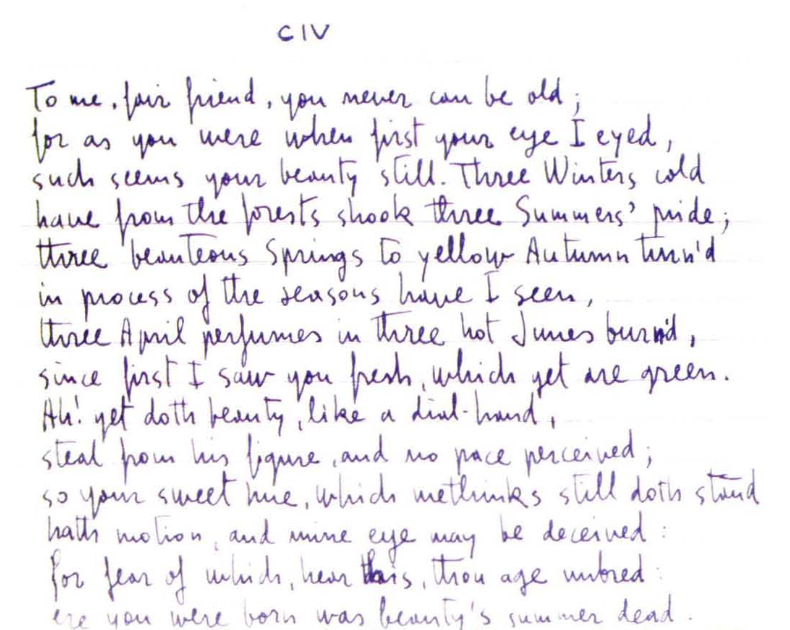 CIV
To me, fair friend, you never can be old;
for as you were when first your eye I eyed,
such seems your beauty still. Three Winters cold
have from the forests shook three Summers' pride;
three beauteous Springs to yellow Autumn turn'd
in process of the seasons have I seen,
three April perfumes in three hot Junes burn'd,
since first I saw you fresh, which yet are green.
Ah! yet doth beauty, like a dial-hand,
steal from his figure, and no pace perceived;
so your sweet hue, which methinks still doth stand
hath motion, and mine eye may be deceived:
for fear of which, hear this, thou age unbred:
ere you were born was beauty's summer dead.